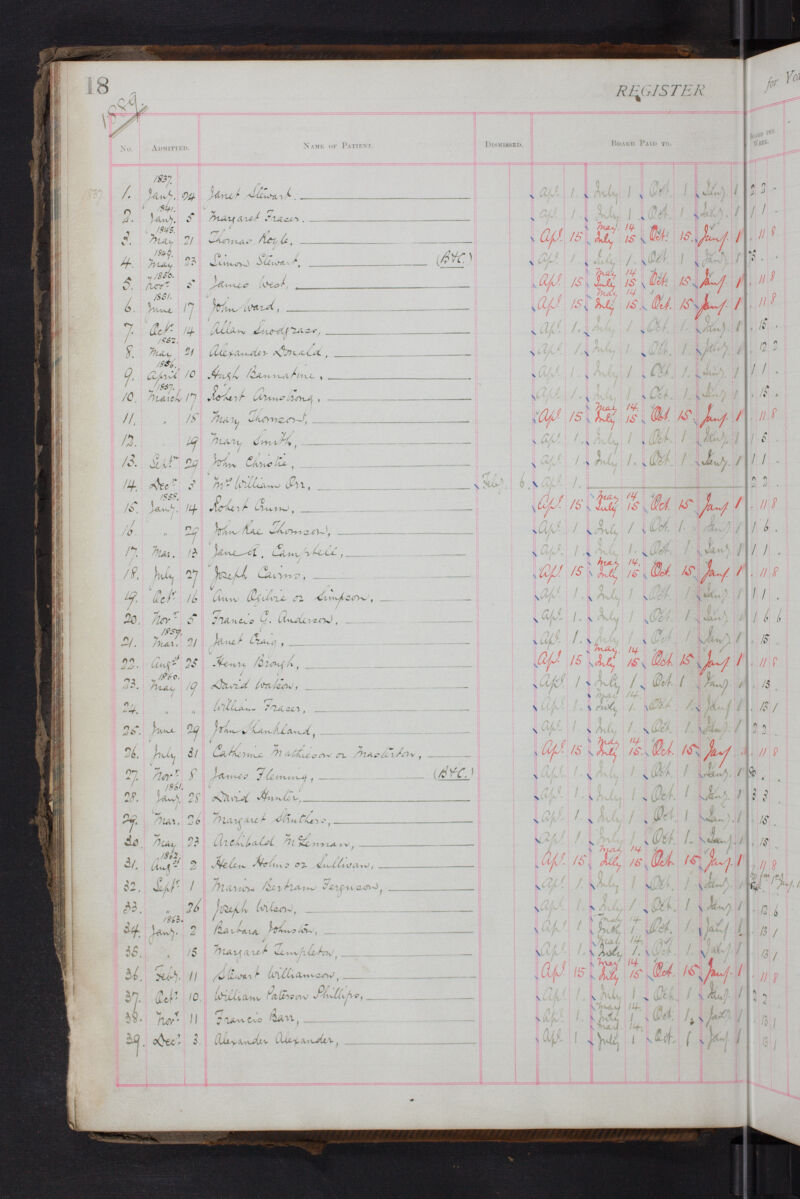 18
REGISTER
for
1889.
No. ADMITTED. NAME OF PATIENT. DISMISSED. BOARD PAID TO. BOARD PER WEEK.
1837.
1. Jany. 24 Janet Stewart. Apl. 1. July 1 Oct. 1 Jany 1 22 -
1841.
2. Jany. 5 Margaret Fraser. Apl. 1. July 1. Oct. 1 Jany. 1 11 -
1845. May 14
3. May 21 Thomas Royle, Apl. 15 July 15 Oct. 15. Jany 1 . 11 8
1849.
4. May 23 Simon Stewart, (B&C.) Apl. 1. July 1. Oct. 1 Jany 1
1850. May 14
5. Novr. 5 James West, Apl. 15 July 15 Oct. 15 Jany 1 . 11 8
1851. May 14
6. June 17 John Ward, Apl. 15 July 15 Oct. 15 Jany. 1 . 11 8
7. Octr. 14 Allan Snodgrass, Apl. 1. July 1. Oct. 1. Jany. 1 . 15 .
1852.
8. May 21 Alexander Donald, Apl. 1. July 1. Oct. 1. Jany. 1 . 22
1856.
9. April 10 Hugh Bannatine, Apl. 1. July 1 Oct. 1. Jany. 1 11 -
1857.
10. March 17 Robert Armstrong, Apl. 1. July 1. Oct. 1. Jany 1 . 15 .
May 14
11. " 18 Mary Thomson, Apl. 15 July 15 Oct. 15. Jany 1 . 11 8
12. 19 Mary Smith, Apl. 1. July 1. Oct. 1 Jany. 1 1 5
13. Septr. 29 John Christie, Apl. 1 July 1. Oct. 1 Jany. 1 11 -
14. Decr. 3 Mrs. William Orr, Feby. 6. Apl. 1. 22 -
1858. May 14
15. Jany. 14 Robert Crum, Apl. 15 July 15 Oct. 15 Jany 1 . 11 8
16. " 29 John Rae Thomson, Apl. 1 July 1 Oct. 1. Jany 1 16 .
17. Mar. 13 Jane A. Campbell, Apl. 1. July 1. Oct. 1 Jany 1 11 .
May 14.
18. July 27 Joseph Cairns, Apl. 15 July 15 Oct. 15. Jany 1 . 11 8
19. Octr. 16 Ann Ogilvie or Simpson, Apl. 1. July 1 Oct. 1 Jany. 1 11 .
20. Novr. 5 Francis G. Anderson, Apl. 1. July 1 Oct. 1 Jany. 1 1 6 6
1859.
21. Mar. 21 Janet Craig, Apl. 1. July 1 Oct. 1 Jany. 1 . 15 .
May 14
22. Augst. 25 Henry Brough, Apl. 15 July 15 Oct. 15 Jany 1 . 11 8
1860.
23. May 19 David Watson, Apl. 1 July 1 Oct. 1 Jany. 1 . 15 .
May 14
24. " " William Fraser, Apl. 1. July 1. Oct. 1. Jany. 1 . 13 1
25. June 29 John Shankland, Apl. 1 July 1. Oct. 1 Jany. 1 22 .
May 14
26. July 31 Catherine Mathieson or Masterton, Apl. 15 July 15. Oct. 15 Jany . 11 8
27. Novr. 8 James Fleming, (B&C.) Apl. 1. July 1 Oct. 1 Jany. 1 80 .
1861.
28. Jany. 28 David Hunter, Apl. 1. July 1. Oct. 1 Jany. 1 33
29. Mar. 26 Margaret Struthers, Apl. 1 July 1. Oct. 1 Jany. 1 . 15 .
30. May 23 Archibald McLennan, Apl. 1 July 1. Oct. 1. Jany. 1 . 15 .
1862. May 14
31. Augst. 2 Helen Holms or Sullivan, Apl. 15 July 15 Oct. 15 Jany. 1 . 11 8
32. Septr. 1 Marion Bertram Ferguson, Apl. 1. July 1 Oct. 1 Jany. 1
33. " 26 Joseph Wilson, Apl. 1. July 1. Oct. 1 Jany. 1 . 12 6
1863. May 14
34. Jany. 2 Barbara Johnston, Apl. 1 July 1 Oct. 1. Jany 1 . 13 1
May 14.
35. " 15 Margaret Templeton, Apl. 1. July 1. Oct. 1. Jany. 1 . 13 1
May 14
36. Feby. 11 Stewart Williamson, Apl. 15 July 15. Oct. 15 Jany. 1 . 11 8
37. Octr. 10. William Paterson Phillips, Apl. 1. July 1 Oct. 1 Jany. 1 22
May 14.
38. Novr. 11 Francis Barr, Apl. 1. July 1 Oct. 1. Jany 1 . 13 1
May 14.
39. Decr. 3. Alexander Alexander, Apl. 1 July 1 Oct. 1 Jany 1 . 13 1